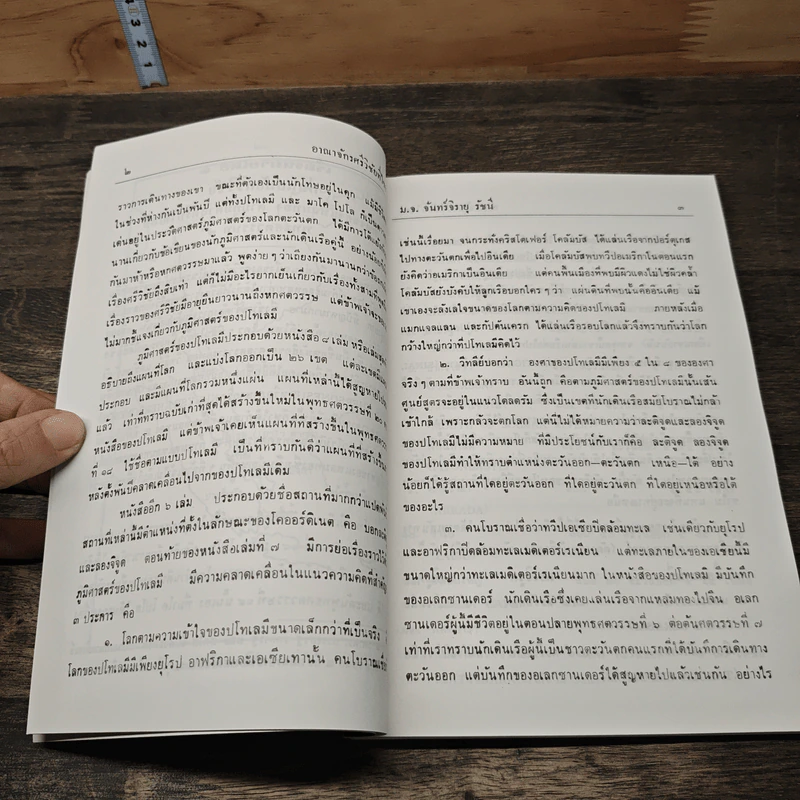 ๒
อาณาจักรศรีวิชัย
ราวการเดินทางของเขา ขณะที่ตัวเองเป็นนักโทษอยู่ในคุก แม้มีชีวิต
ในช่วงที่ห่างกันเป็นพันปี แต่ทั้งปโทเลมี และ มาโค โปโล ก็เป็น
เด่นอยู่ในประวัติศาสตร์ภูมิศาสตร์ของโลกตะวันตก ได้มีการโต้
นานเกี่ยวกับข้อเขียนของนักภูมิศาสตร์และนักเดินเรือคู่นี้ อย่าง
กันมาห้าหรือหกศตวรรษมาแล้ว พูดง่าย ๆ ว่าเถียงกันมานานกว่า
เรื่องศรีวิชัยถึงสิบเท่า แต่ก็ไม่มีอะไรยากเย็นเกี่ยวกับเรื่องทั้งสาม
เรื่องราวของศรีวิชัยมีอายุยืนยาวนานถึงหกศตวรรษ แต่ข้าพเจ้าจะ
ไม่มากชี้แจงเกี่ยวกับภูมิศาสตร์ของปโทเลมี
ภูมิศาสตร์ของปโทเลมีประกอบด้วยหนังสือ ๘ เล่ม หรือเล่ม
อธิบายถึงแผนที่โลก และแบ่งโลกออกเป็น ๒๖ เขต แต่ละเขตมี
ประกอบ และมีแผนที่โลกรวมหนึ่งแผ่น แผนที่เหล่านี้ได้สูญหายไป
แล้ว เท่าที่ทราบฉบับเก่าที่สุดได้สร้างขึ้นใหม่ในพุทธศตวรรษที่ ๒๐
หนังสือของปโทเลมี แต่ข้าพเจ้าเคยเห็นแผนที่ที่สร้างขึ้นในพุทธศต
ที่ ๑๘ ใช้ชื่อตามแบบปโทเลมี เป็นที่ทราบกันดีว่าแผนที่ที่สร้างขึ้น
หลังตั้งพันปีคลาดเคลื่อนไปจากของปโทเลมีเดิม
หนังสืออีก ๖ เล่ม ประกอบด้วยชื่อสถานที่มากกว่าแปดพัน
สถานที่เหล่านี้มีตำแหน่งที่ตั้งในลักษณะของโคออร์ดิเนต คือ บอก
และลองจิจูด ตอนท้ายของหนังสือเล่มที่ ๗ มีการย่อเรื่องราวไว้
ภูมิศาสตร์ของปโทเลมี มีความคลาดเคลื่อนในแนวความคิดที่สำคัญ
๓ ประการ คือ
๑. โลกตามความเข้าใจของปโทเลมีขนาดเล็กกว่าที่เป็นจริง
โลกของปโทเลมีมีเพียงยุโรป อาฟริกาและเอเซียเท่านั้น คนโบราณเชื่อ
ม.จ. จันทร์จิรายุ รัชนี
๓
เช่นนี้เรื่อยมา จนกระทั่งคริสโตเฟอร์ โคลัมบัส ได้แล่นเรือจากปอร์ตุเกส
ไปทางตะวันตกเพื่อไปอินเดีย เมื่อโคลัมบัสพบทวีปอเมริกาในตอนแรก
ยังคิดว่าอเมริกาเป็นอินเดีย แต่คนพื้นเมืองที่พบมีผิวแดงไม่ใช่ผิวคล้ำ
โคลัมบัสยังบังคับให้ลูกเรือบอกใคร ๆ ว่า แผ่นดินที่พบนั้นคืออินเดีย แม้
เขาเองจะลังเลใจขนาดของโลกตามความคิดของปโทเลมี ภายหลังเมื่อ
แมกแจลแลน และกัปตันเดรก ได้แล่นเรือรอบโลกแล้วจึงทราบกันว่าโลก
กว้างใหญ่กว่าที่ปโทเลมีคิดไว้
๒. วิทลีย์บอกว่า องศาของปโทเลมีมีเพียง ๕ ใน ๘ ขององศา
จริง ๆ ตามที่ข้าพเจ้าทราบ อันนี้ถูก คือตามภูมิศาสตร์ของปโทเลมีนั้นเส้น
ศูนย์สูตรจะอยู่ในแนวโตลดรัม ซึ่งเป็นเขตที่นักเดินเรือสมัยโบราณไม่กล้า
เข้าใกล้ เพราะกลัวจะตกโลก แต่นี่ไม่ได้หมายความว่าละติจูดและลองจิจูด
ของปโทเลมีไม่มีความหมาย ที่มีประโยชน์กับเราก็คือ ละติจูด ลองจิจูด
ของปโทเลมีทำให้ทราบตำแหน่งตะวันออก—ตะวันตก เหนือ—ใต้ อย่าง
น้อยก็ได้รู้สถานที่ใดอยู่ตะวันออก ที่ใดอยู่ตะวันตก ที่ใดอยู่เหนือหรือใต้
ของอะไร
๓. คนโบราณเชื่อว่าทวีปเอเซียปิดล้อมทะเล เช่นเดียวกับยุโรป
และอาฟริกาปิดล้อมทะเลเมดิเตอร์เรเนียน แต่ทะเลภายในของเอเซียนี้มี
ขนาดใหญ่กว่าทะเลเมดิเตอร์เรเนียนมาก ในหนังสือของปโทเลมี มีบันทึก
ของอเลกซานเดอร์ นักเดินเรือซึ่งเคยแล่นเรือจากแหลมทองไปจีน อเลก
ซานเดอร์ผู้นี้มีชีวิตอยู่ในตอนปลายพุทธศตวรรษที่ ๖ ต่อต้นศตวรรษที่ ๗
เท่าที่เราทราบนักเดินเรือผู้นี้เป็นชาวตะวันตกคนแรกที่ได้บันทึกการเดินทาง
ตะวันออก แต่บันทึกของอเลกซานเดอร์ได้สูญหายไปแล้วเช่นกัน อย่างไร